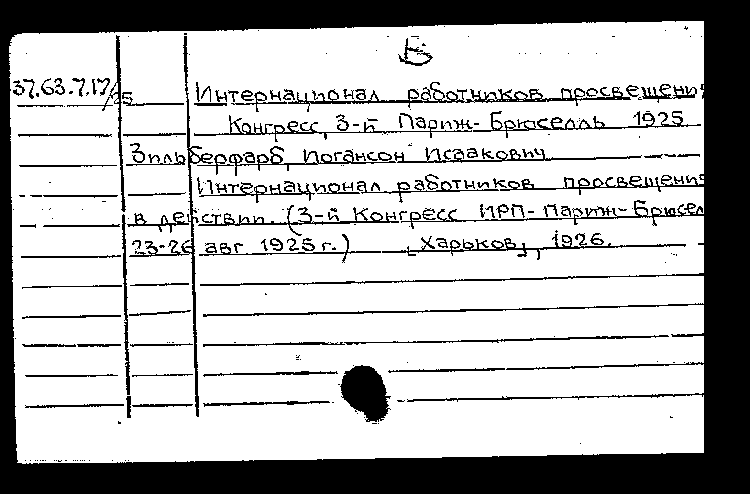 Б
37.63.7.17/25 Интернационал работников просвещени
Конгресс, 3-й Париж-Брюселль 1925
Зильберфарб, Иогансон Исаакович
Интернационал работников просвещения
в действии. (3-й Конгресс ИРП-Париж-Брюсел
23-26 авг 1925 г.) [Харьков], 1926.